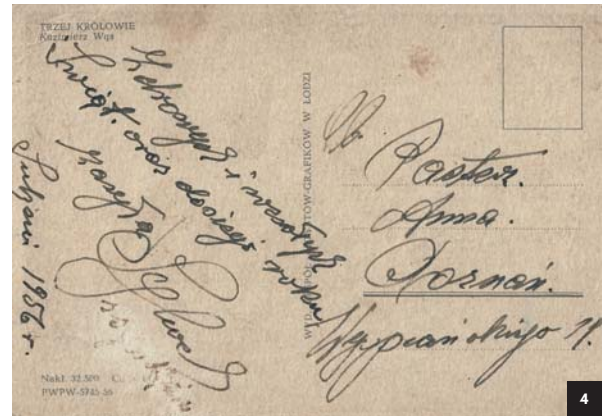 TRZEJ KRÓLOWIE
Kazimierz Wąs
Zdrowych i wesołych
Świąt. oraz dosiego roku
zasyła
1956 r.
Nakł. 32.500
PWPW-5745-56
GRAFIKÓW W ŁODZI
Ob.
Paster.
Anna.
Poznań.
Wyspiańskiego 11.
4